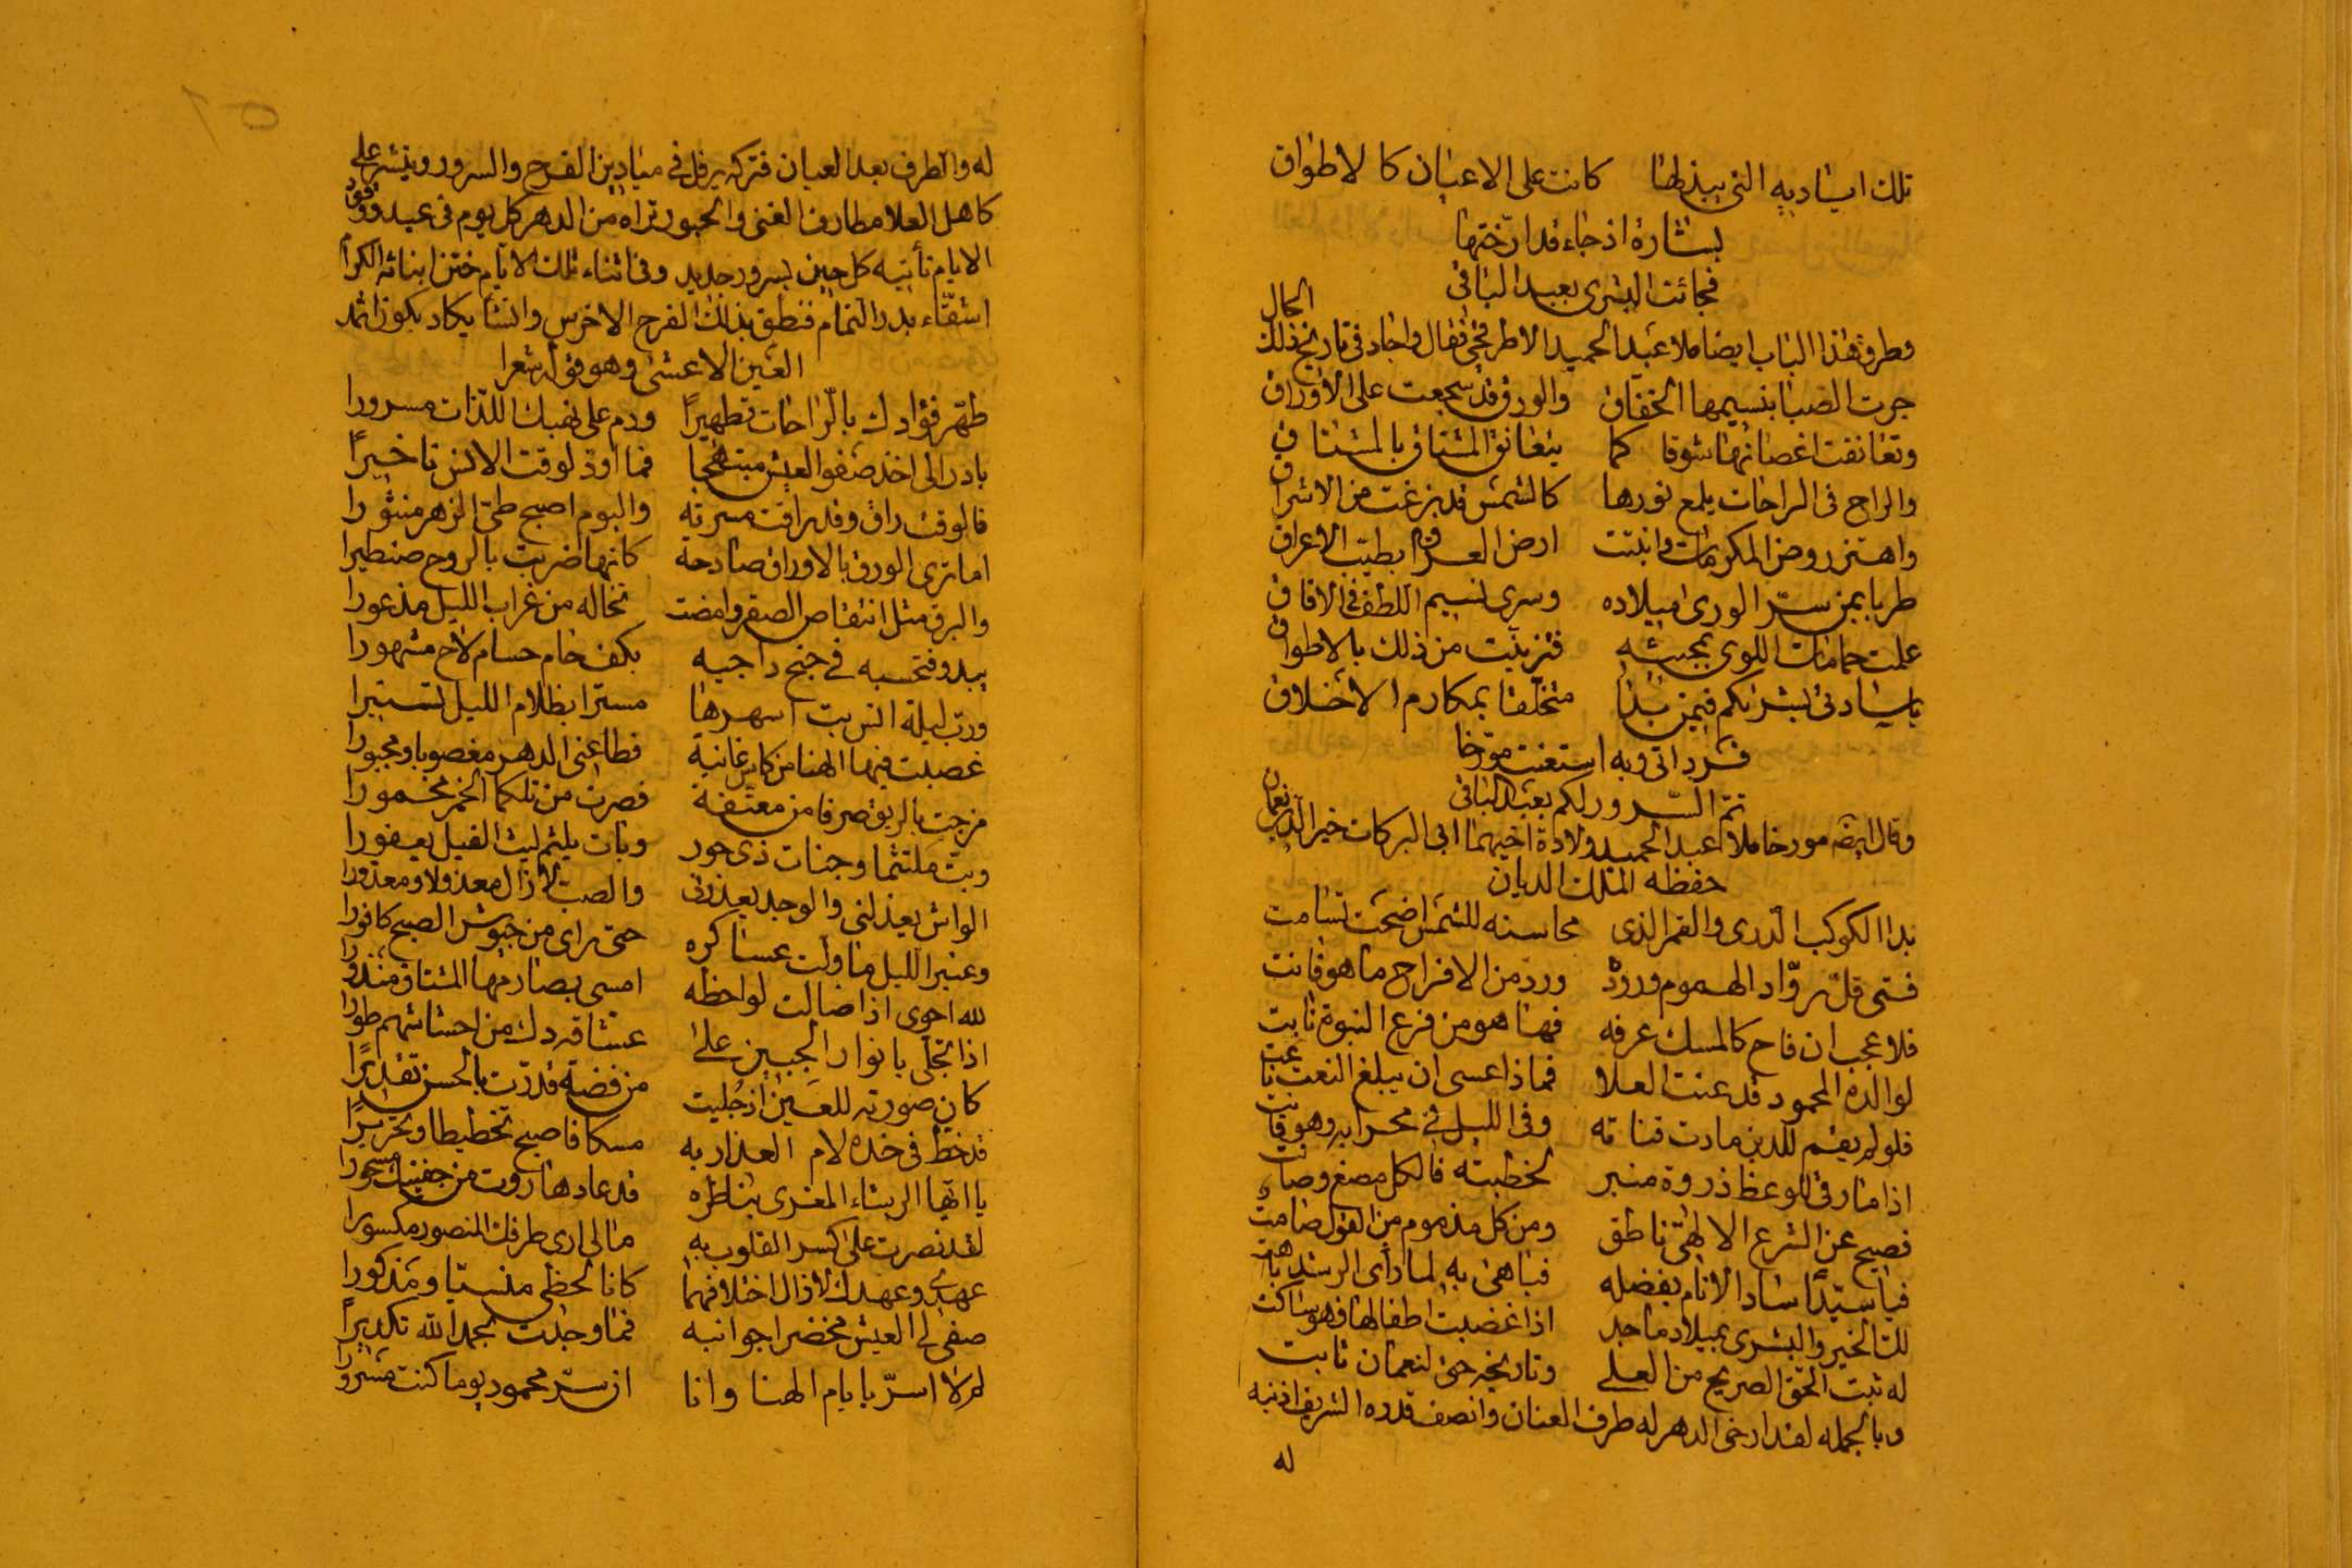 تلك اياديه التي ببذلها كانت على الاعيان كالاطواق
بشارة اذ جاء قد ارختها
فجائت البشرى بعبد الباقي
وطرق هذا الباب ايضا ملا عبد الحميد الاطرقجي فقال واجاد في تاريخ ذلك الحال
جرت الصبا بنسيمها الخفاق والورق قد سجعت على الاوراق
وتعانقت اغصانها شوقا كما يتعانق المشتاق بالمشتاق
والراح في الراحات يلمع نورها كالشمس قد بزغت من الاشراق
واهتز روض المكرمات وانبتت ارض العراق بطيب الاعراق
طربا بمن سر الورى ميلاده وسرى نسيم اللطف في الافاق
علمت حمامات اللوى بمجيئه فتزينت من ذلك بالاطواق
يا سادتي بشراكم فيمن بدا متخلقا بمكارم الاخلاق
فرد اتى وبه استعنت مؤرخا
تم السرور لكم بعبد الباقي
وقال ايضه مورخا ملا عبد الحميد ولادة اخيهما ابي البركات خير الدين نعمان
حفظه الملك الديان
بدا الكوكب الدري والقمر الذي محاسنه للشمس اضحت تسامت
فتى قل رواد الهموم وروده ورد من الافراح ما هو فائت
فلا عجب ان فاح كالمسك عرفه فها هو من فرع النبوة نابت
لوالده المحمود قد عنت العلا فماذا عسى ان يبلغ النعت ناعت
فلو لم يقم للدين مادت قناته وفي الليل في محرابه وهو قانت
اذا ما رقى للوعظ ذروة منبر لخطبته فالكل مصغ وصائت
فصيح عن الشرع الالهي ناطق ومن كل مذموم من القول صامت
فيا سيدا ساد الانام بفضله فباهى به لما رأى الرشد باهت
لك الخير والبشرى بميلاد ماجد اذا غضبت اطفالها فهو ساكت
له ثبت الحق الصريح من العلى وتاريخه حق لنعمان ثابت
وبالجمله لقد ارخى الدهر له طرف العنان وانصف قدره الشريف اذ نبه
له
له والطرف بعد العيان فتركه يرفل في ميادين الفرح والسرور وينشر على
كاهل العلا مطارف الغنى والحبور تراه من الدهر كل يوم في عيد ووفود
الايام تأتيه كل حين بسرور جديد وفي اثناء تلك الايام ختن ابنائه الكرام
اشقاء بدر التمام فنطق بذلك الفرح الاخرس وانشأ يكاد يكون اثمد
العين الاعشى وهو قوله شعرا
طهر فؤادك بالراحات تطهيرا ودم على نهبك اللذات مسرورا
بادر الى اخذ صفو العيش مبتهجا فما اود لوقت الانس تاخيرا
فالوقت راق وقد راقت مسرته واليوم اصبح طي الزهر منثورا
اما ترى الورق بالاوراق صادحة كانها ضربت بالروح صنطيرا
والبرق مثل انتقاص الصقر وامضت تخاله من غراب الليل مذعورا
يبدو فتحسبه في جنح داجيه بكف حام حسام لاح مشهورا
ورب ليلة انس بت اسهرها مسترا بظلام الليل تستيرا
غصبت فيها الهنا من كاس غانية فطاعني الدهر مغصوبا ومجبورا
مزجت بالريق صرفا من معتقة فصرت من تلكما الخمر مخمورا
وبت ملتثما وجنات ذي حور وبات يلثم ليث الغيل يعفورا
الواش يعذلني والوجد يعذرني والصب لا زال معذولا ومعذورا
وعنبر الليل ما ولت عساكره حتى راى من جيوش الصبح كافورا
لله احوى اذا صالت لواحظه امسى بصارمها المشتاق منذورا
اذا تجلى بانوار الجبين على عشاقه دك من احشائهم طورا
كان صورته للعين اذ جليت من فضة قدرت بالحسن تقديرا
قد خط في خده لام العذار به مسكا فاصبح تخطيطا وتحريرا
يا ايها الرشاء المغرى بناظره قد عاد هاروت من جفنيك مسحورا
لقد نصرت على كسر القلوب به مالي ارى طرفك المنصور مكسورا
عهدي وعهدك لا زال اختلافهما كانا لحظي منسيا ومذكورا
صفى لي العيش مخضرا جوانبه فما وجدت بحمد الله تكديرا
لم لا اسر بايام الهنا وانا ان سر محمود يوما كنت مسرورا